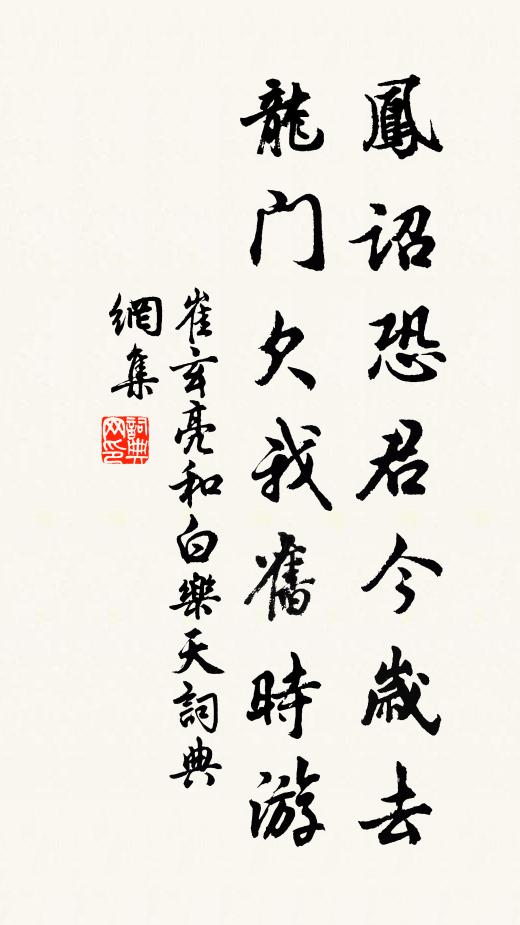 鳳詔恐君今歲去
龍門欠我舊時游
崔玄亮和白樂天詞典
網集
詞典
网印